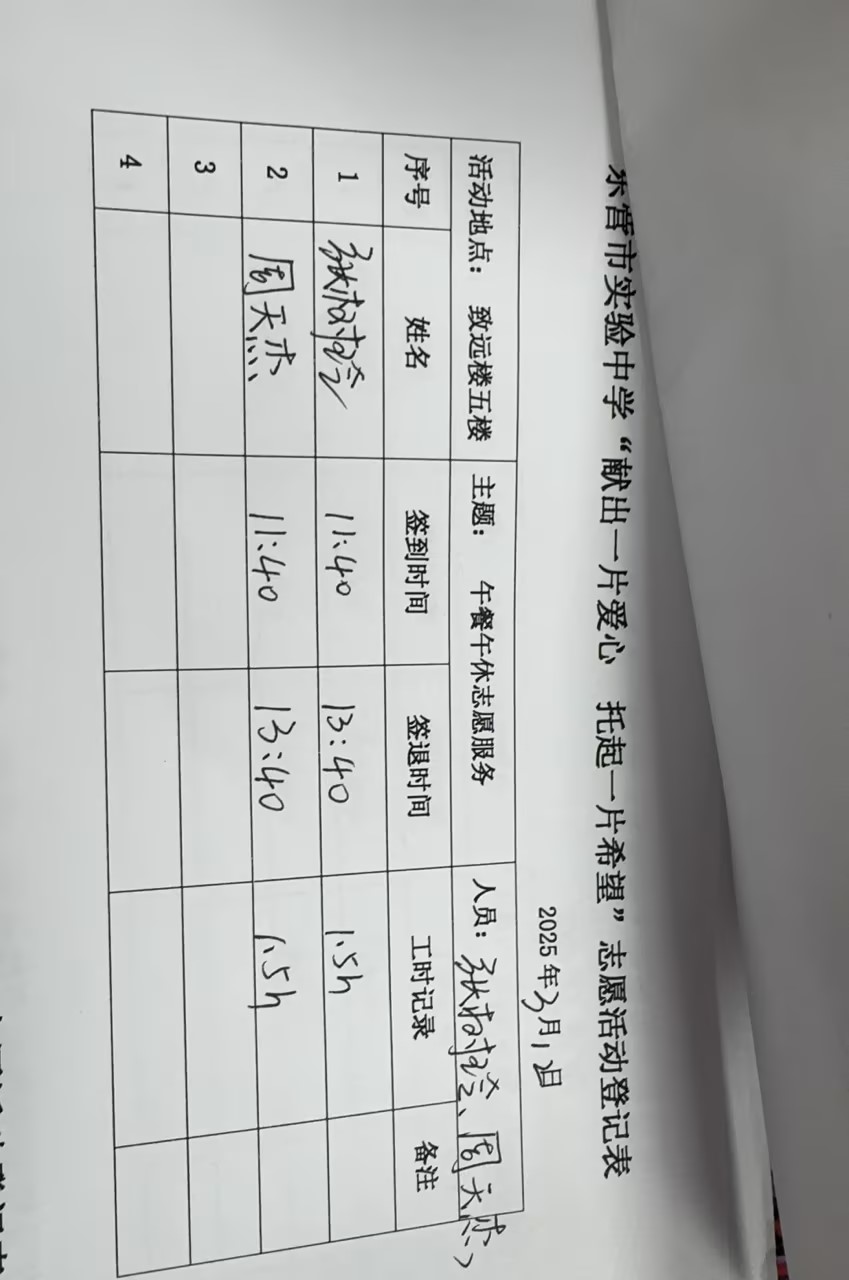 东营市实验中学“献出一片爱心 托起一片希望”志愿活动登记表
2025年3月12日
活动地点： 致远楼五楼 主题： 午餐午休志愿服务 人员： 张 、周天杰
序号 姓名 签到时间 签退时间 工时记录 备注
1 张 11:40 13:40 1.5h
2 周天杰 11:40 13:40 1.5h
3
4